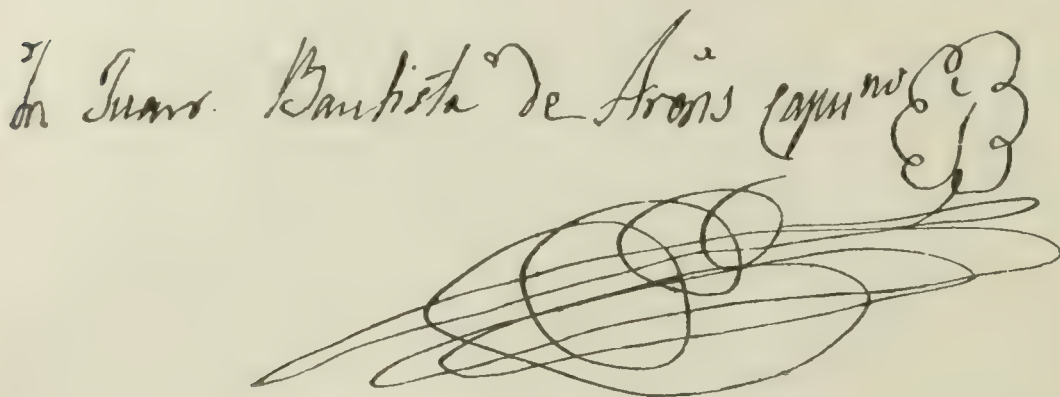 Fr Juan Bautista de Arosis capuno